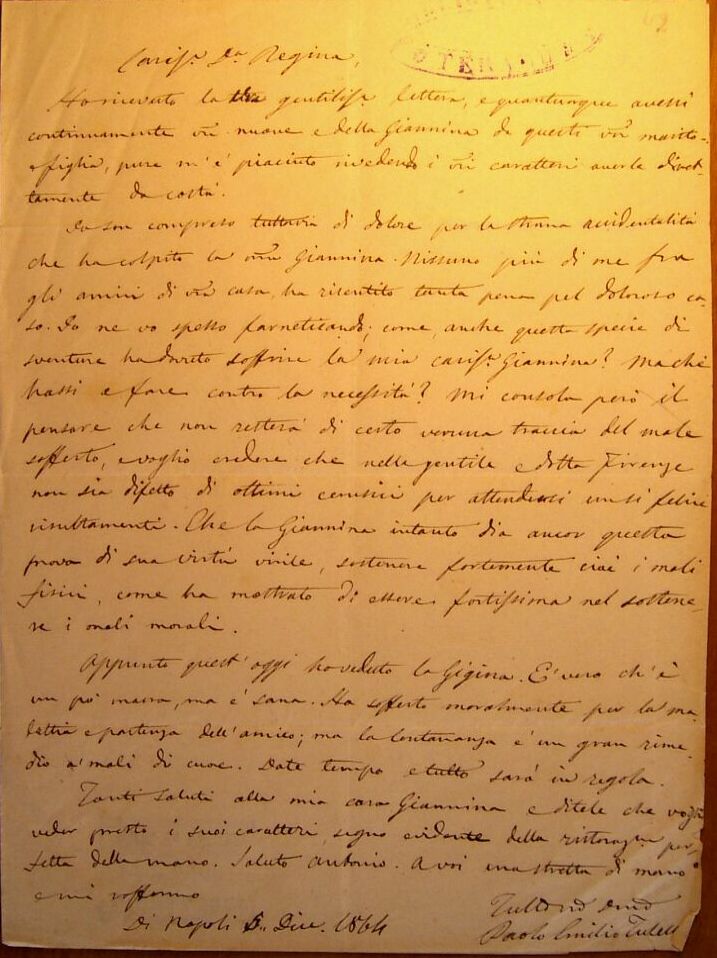 Cariſ.ª D.ª Regina,
TERAMO
62
Ho ricevuto la gentiliſs.ª lettera, e quantunque avessi
continuamente vr̃e nuove e della Giannina da questi vr̃i marito
e figlia, pure m'è piaciuto rivedendo i vr̃i caratteri averle diret-
tamente da costà.
Io son compreso tuttavia di dolore per la strana accidentalità
che ha colpito la vr̃a Giannina. Nissuno più di me fra
gli amici di vr̃a casa, ha risentito tanta pena pel doloroso ca-
so. Io ne vo spesso farneticando; come, anche questa specie di
sventure ha dovuto soffrire la mia cariſ.ª Giannina? Ma che
hassi a fare contro la neceſsità? Mi consola però il
pensare che non resterà di certo veruna traccia del male
sofferto, e voglio credere che nella gentile e dotta Firenze
non sia difetto di ottimi cerusici per attendersi un sì felice
risultamento. Che la Giannina intanto dia ancor questa
prova di sua virtù virile, sostenere fortemente cioè i mali
fisici, come ha mostrato di essere fortissima nel sostene-
re i mali morali.
Appunto quest'oggi ho veduto la Gigina. E' vero ch'è
un pò magra, ma è sana. Ha sofferto moralmente per la ma-
lattia e partenza dell'amico; ma la lontananza è un gran rime-
dio a' mali di cuore. Date tempo e tutto sarà in regola.
Tanti saluti alla mia cara Giannina e ditele che voglio
veder presto i suoi caratteri, segno evidente della per-
fetta della mano. Saluto Antonio. A voi una stretta di mano
e mi raffermo
Di Napoli 5. Dice. 1864
Tutto vr̃o
Paolo Emilio Tulelli